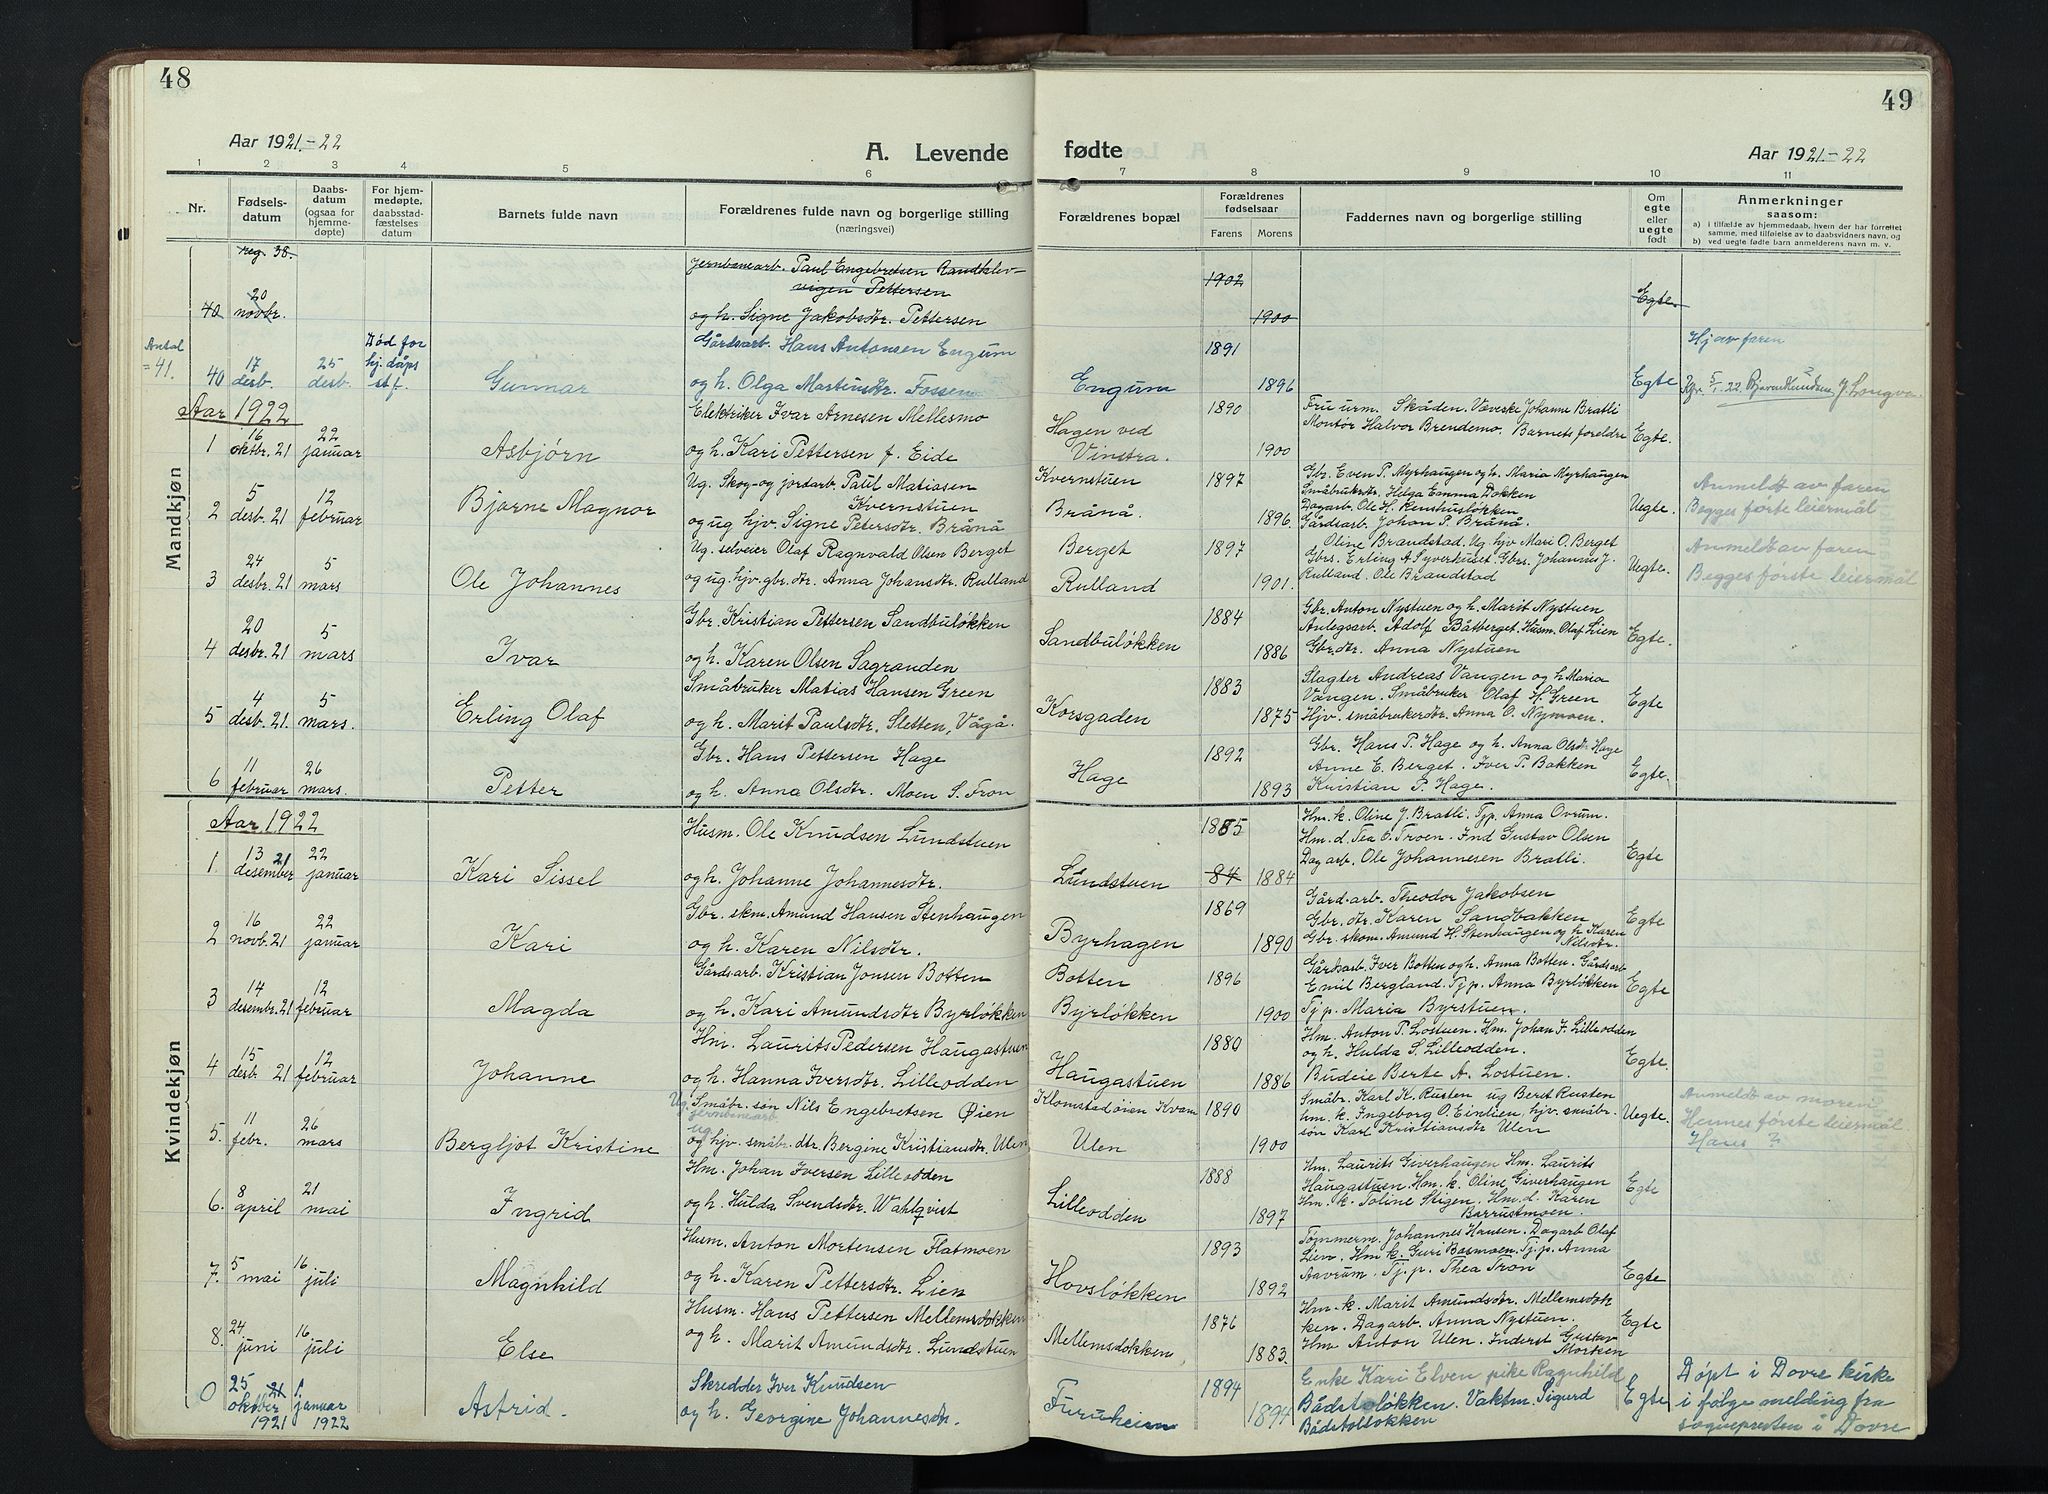 48
Aar 1921.-22
A. Levende
1 2 3 4 5 6
Nr.
Fødsels-
datum
Daabs-
datum
(ogsaa for
hjemme-
døpte)
For hjem-
medøpte,
daabsstad-
fæstelses
datum
Barnets fulde navn
Forældrenes fulde navn og borgerlige stilling
(næringsvei)
Mandkjøn
reg. 38.
Jernbanearb. Paul Engebretsen
vigen Pettersen
40 20 novbr. og h. Signe Jakobsdtr. Pettersen
Antal
=41.
Død for
hj. dåps
st f.
Gårdsarb. Hans Antonsen Engum
40 17 desb. 25 desb. Gunnar og h. Olga Martinsdtr. Fossen
Aar 1922
Elektriker Ivar Arnesen Mellesmo
1 16 oktbr. 21 22 januar Asbjørn og h. Kari Pettersen f. Eide
Ug. Skog- og jordarb. Paul Matiasen
Kvernstuen
2 5 desb. 21 12 februar Bjarne Magnor og ug hjv. Signe Petersdtr. Brånå
Ug. selveier Olaf Ragnvald Olsen Berget
3 24 desbr. 21 5 mars Ole Johannes og ug. hjv. gbr. dtr. Anna Johansdtr. Rulland
Gbr. Kristian Pettersen Sandbuløkken
4 20 desbr. 21 5 mars Ivar og h. Karen Olsen Sagranden
Småbruker Matias Hansen Green
5 4 desb. 21. 5 mars. Erling Olaf og h. Marit Paulsdtr. Sletten, Vågå.
Gbr. Hans Pettersen Hage
6 11 februar 26 mars. Petter og h. Anna Olsdtr. Moen S. Fron
Kvindekjøn
Aar 1922
Husm. Ole Knudsen Lundstuen
1. 13 desember 21 22 januar Kari Sissel og h. Johanne Johannesdtr.
Gbr. skm. Amund Hansen Stenhaugen
2 16 novb. 21 22 januar Kari og h. Karen Nilsdtr.
Gårdsarb. Kristian Jonsen Botten
3 14 desembr. 21 12 februar Magda og h. Kari Amundsdtr Byrløkken
Hm. Laurits Pedersen Haugastuen
4 15 desb. 21 12 februar Johanne og h. Hanna Iversdtr. Lilleodden
Ug. Småbr. søn Nils Engebretsen Øien
jernbanearb.
ug.
5. 11 febr. 26 mars Bergljot Kristine og hjv. småbr. dtr. Bergine Kristiansdtr. Ulen
Hm. Johan Iversen Lilleodden
6. 8 april 21 mai Ingrid og h. Hulda Svendsdtr. Wahlqvist
Husm. Anton Mortensen Flatmoen
7. 5 mai 16 juli Magnhild og h. Karen Pettersdtr. Lien
Husm. Hans Pettersen Mellemsdokken
8. 24 juni 16 juli Else og h. Marit Amundsdtr. Lundstuen
Skredder Iver Knudsen
0 25 oktber 21 1921 1. januar 1922 Astrid. og h. Georgine Johannesdtr.
49
fødte
Aar 1921-22
7 8 9 10 11
Forældrenes bopæl
Forældrenes
fødselsaar
Farens Morens
Faddernes navn og borgerlige stilling
Om
egte
eller
uegte
født
Anmerkninger
saasom:
a) i tilfælde av hjemmedaab, hvem der har forrettet
samme, med tilføielse av to daabsvidners navn, og
b) ved uegte fødte barn anmelderens navn m. v.
1902 1900 Egte.
Hj av faren
Engum 1891 1896 Egte
Hagen ved
Vinstra.
1890 1900
Fru urm. Skåden. Væverske Johanne Bratli
Montør Halvor Brendemo. Barnets foreldre
Egte.
Kvernstuen
Brånå.
1897 1896.
Gbr. Even P. Myrhaugen og h. Maria Myrhaugen
Småbruksdtr. Helga Emma Dokken
Dagarb. Ole H. Renshusløkken
Gårdsarb. Johan P. Brånå.
Uegte.
Anmeldt av faren
Begges første leiermål
Berget
Rulland
1897 1901.
Oline Brandstad. Ug. hjv Mari O. Berget
Gbrs. Erling A Syverhuset. Gbrs. Johannes J.
Rulland. Ole Brandstad
Uegte.
Anmeldt av faren
Begges første leiermål
Sandbuløkken
1884 1886
Gbr. Anton Nystuen og h. Marit Nystuen
Anlegsarb. Adolf Båtberget. Husm. Olaf Lien
Gbr. dtr. Anna Nystuen
Egte.
Korsgaden
1883 1875
Slagter Andreas Vangen og h Maria
Vangen. Småbruker Olaf H. Green
Hjv. småbrukerdtr. Anna O. Nymoen.
Egte
Hage
1892 1893
Gbr. Hans P. Hage og h. Anna Olsdtr Hage
Anne E. Berget. Iver P. Bakken
Kristian P. Hage.
Egte.
Lundstuen
1885 84 1884
Hm. k. Oline J. Bratli. Tjp. Anna Ovrum.
Hm. d. Tea O. Troen. Ind Gustav Olsen
Dagarb. Ole Johannesen Bratli.
Egte
Byrhagen
1869 1890
Gård. arb. Theodor Jakobsen
Gbr. dtr. Karen Sandbakken
Gbr. skom. Amund H. Stenhaugen og h Karen
Nilsdtr.
Egte
Botten
Byrløkken
1896 1900
Gårdsarb. Iver Botten og h. Anna Botten. Gårdsarb
Emil Bergland. Tj. p. Anna Byrløkken
Tj p. Maria Byrstuen.
Egte
Haugastuen
1880 1886
Hm. Anton P. Lostuen. Hm. Johan F. Lilleodden
og h. Hulda S. Lilleodden.
Budeie Berte A. Lostuen.
Egte.
Klomstadøien Kvam
Ulen
1890 1900
Småbr. Karl K. Rusten ug Berit Rusten
hm. k. Ingeborg O. Einlien, hjv. småbr.
søn Karl Kristiansdtr Ulen
Uegte.
Anmeldt av moren
Hennes første leiermål
Hans ?
Lilleodden
1888 1897
Hm. Laurits Giverhaugen Hm. Laurits
Haugastuen. Hm. k. Oline Giverhaugen
Hm. k. Toline Stigen. Hm. d. Karen
Barrustmoen.
Egte
Hovsløkken
1893 1892
Tømmerm. Johannes Hansen. Dagarb Olaf
Lien. Hm k. Guri Basmoen. Tj. p. Anna
Aavrum. Tj. p. Thea Tron
Egte
Mellemsdokken
1876 1883.
Hm. k. Marit Amundsdtr. Mellemsdok
ken. Dagarb. Anna Nystuen.
Hm Anton Ulen. Inderst Gustav
Morken
Egte
Furuheim
1894 1894
Enke Kari Elven pike Ragnhild
Bådstøløkken. Vaktm. Sigurd
Bådstølløkken
Egte
Døpt i Dovre kirke
i følge melding fra
sognepresten i Dovre